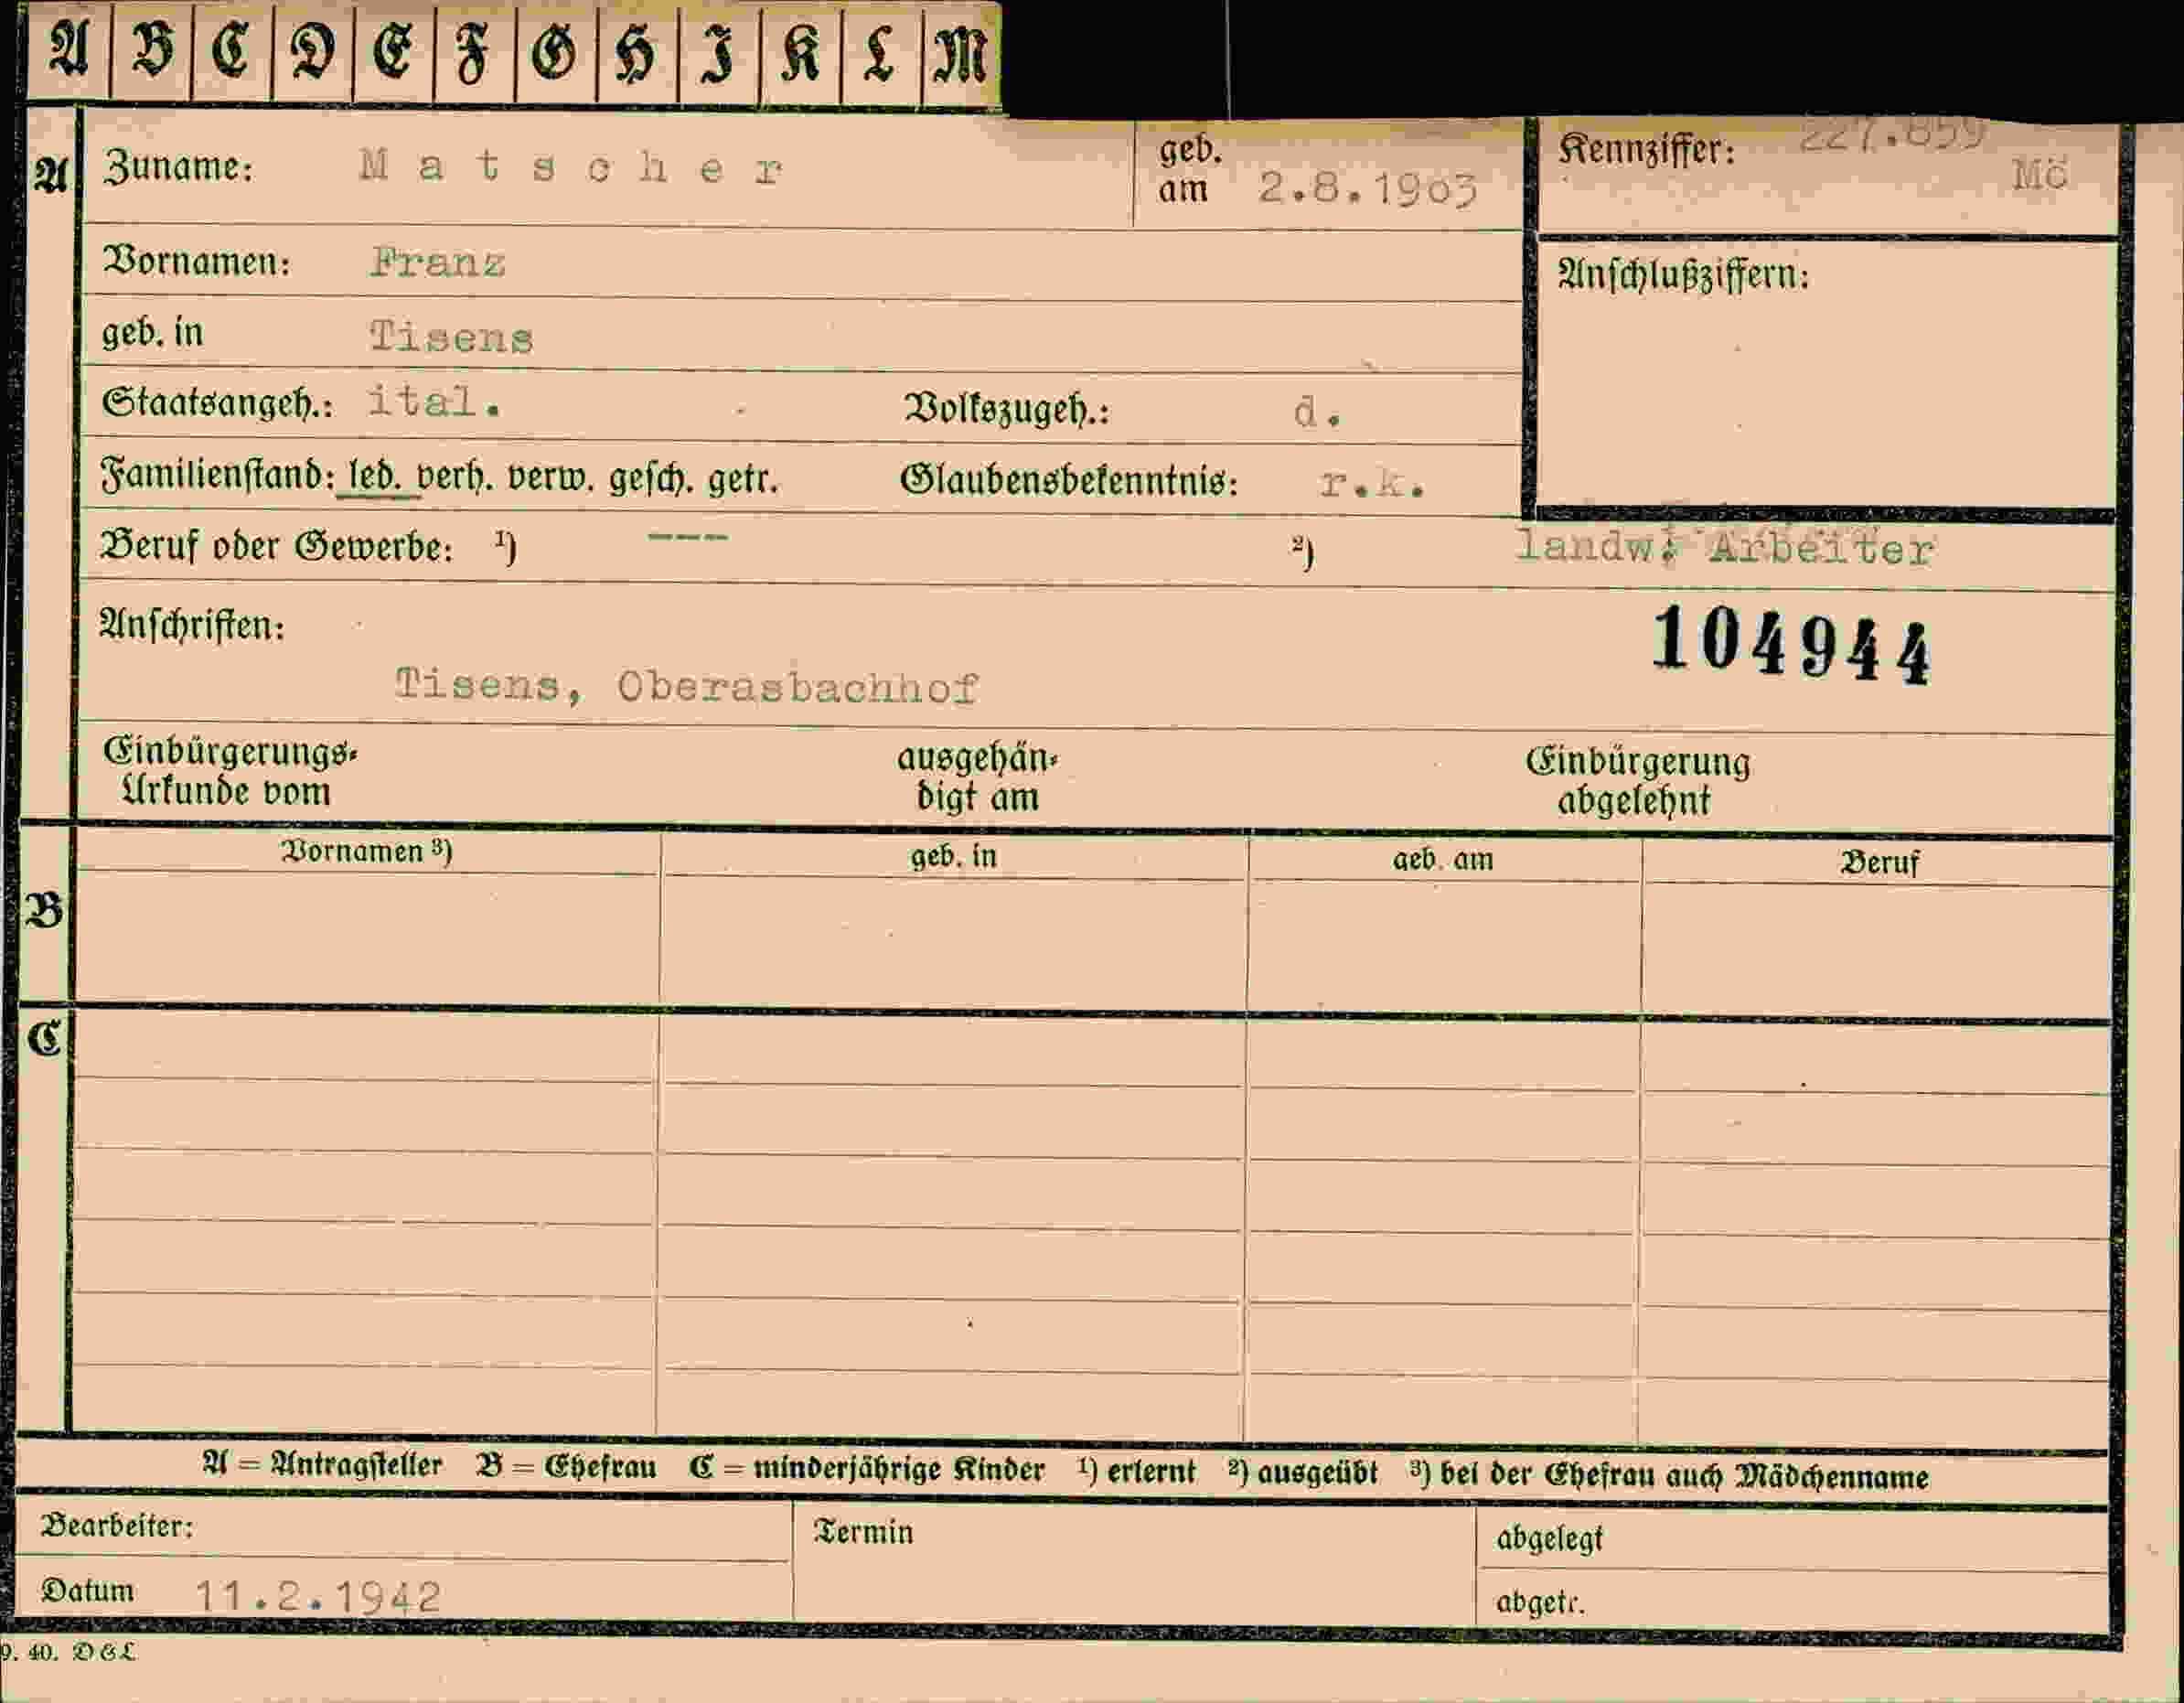 A B C D E F G H I K L M
A Zuname: Matscher geb. am 2.8.1903 Kennziffer: 227.859 Mö
Vornamen: Franz Anschlußziffern:
geb. in Tisens
Staatsangeh.: ital. Volkszugeh.: d.
Familienstand: led. verh. verw. gesch. getr. Glaubensbekenntnis: r.k.
Beruf oder Gewerbe: 1) ---- 2) landw. Arbeiter
Anschriften: 104944
Tisens, Oberasbachhof
Einbürgerungs- ausgehän- Einbürgerung
Urkunde vom digt am abgelehnt
Vornamen 3) geb. in geb. am Beruf
B
C
A = Antragsteller B = Ehefrau C = minderjährige Kinder 1) erlernt 2) ausgeübt 3) bei der Ehefrau auch Mädchenname
Bearbeiter: Termin abgelegt
Datum 11.2.1942 abgetr.
9. 40. DGL